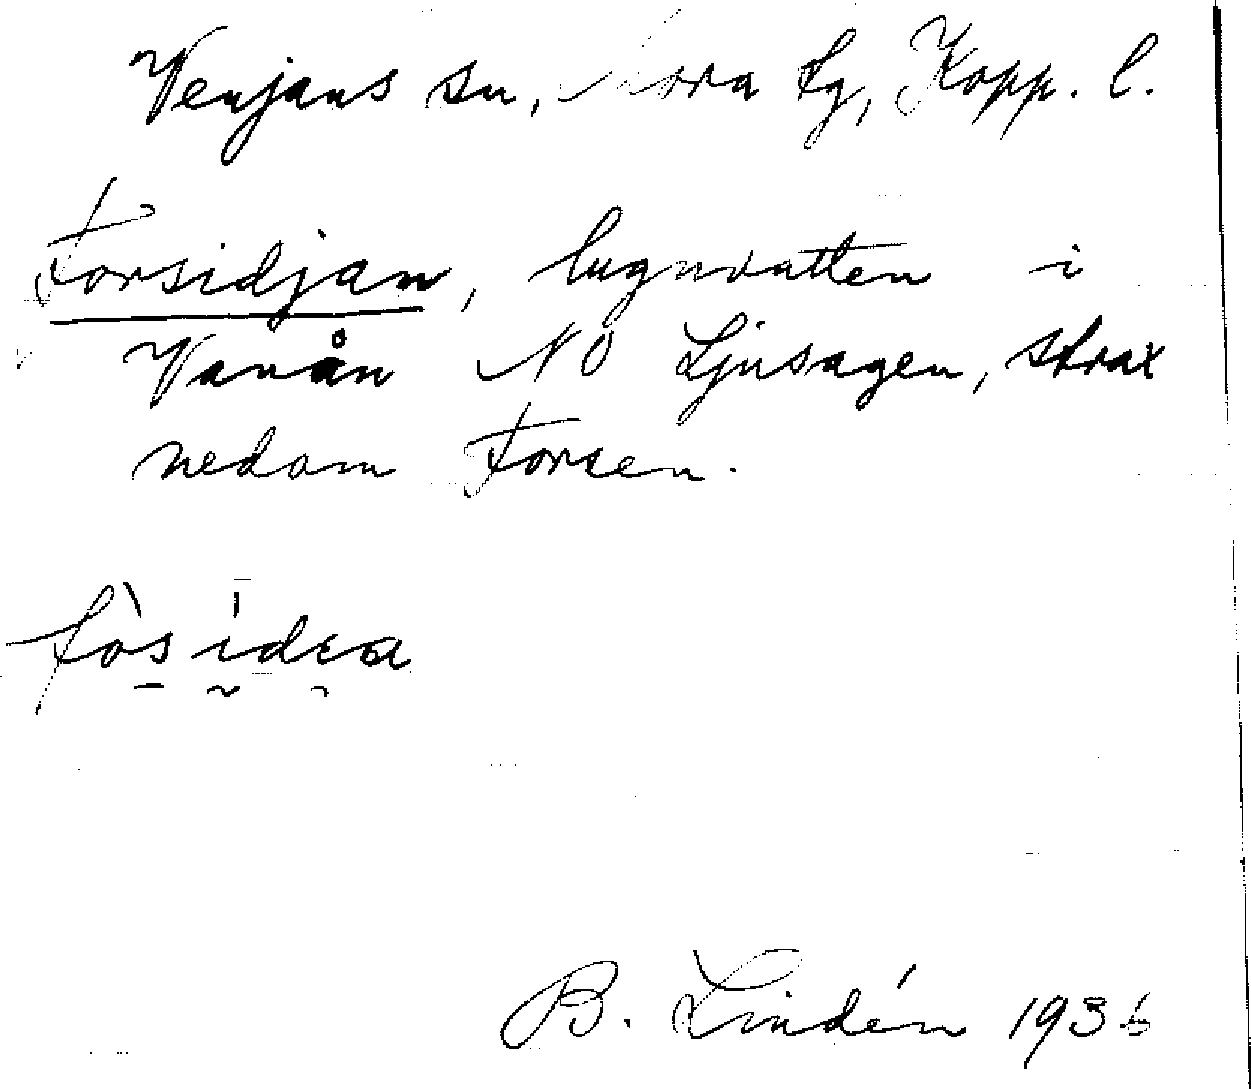 Venjans sn, Mora tg, Kopp. l.
Forsidjan, lugnvatten i
Vanån NO Ljusagen, strax
nedom Forsen.
B. Lindén 1936